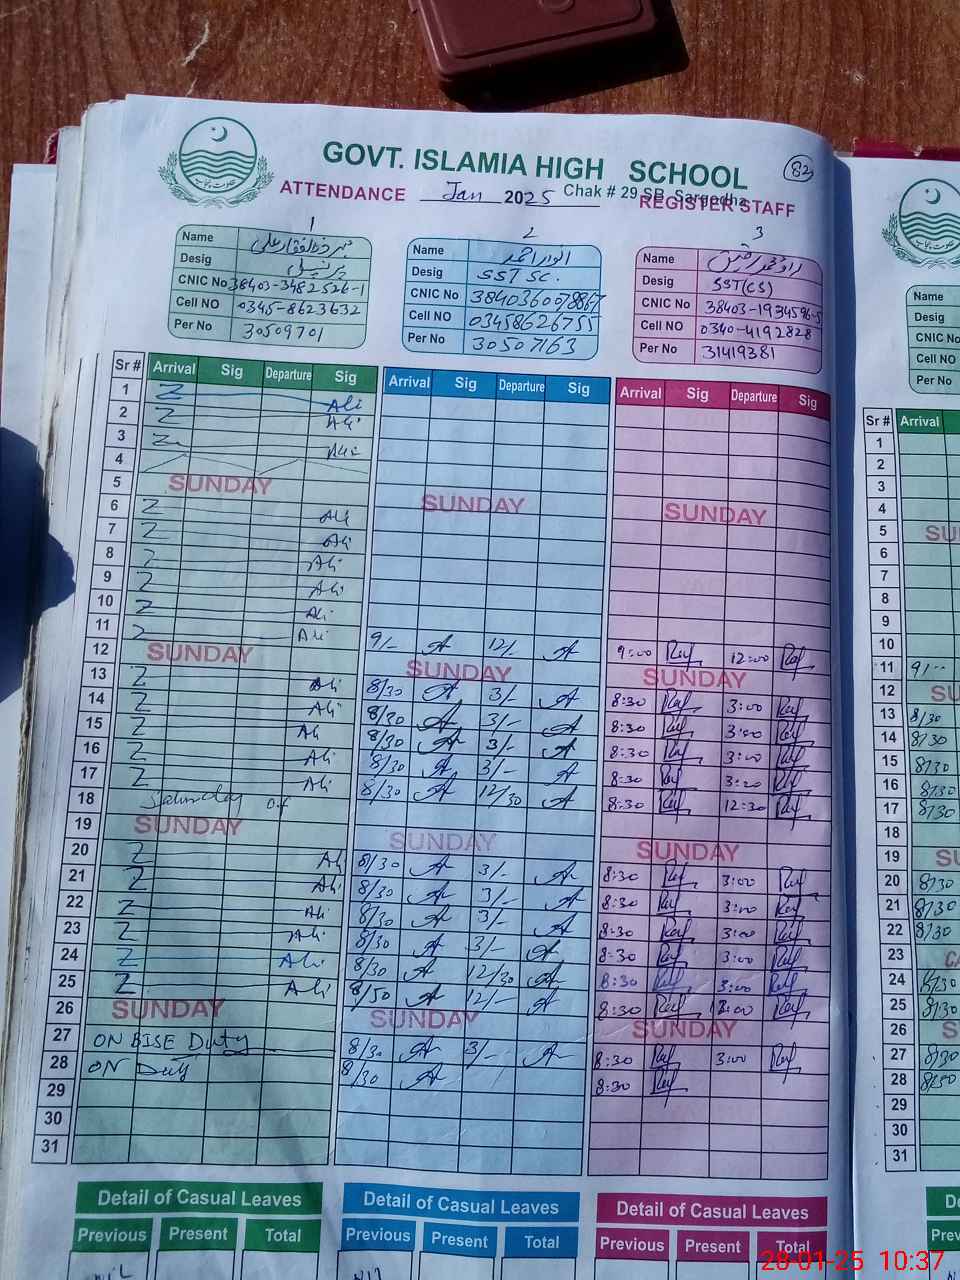 GOVT. ISLAMIA HIGH SCHOOL
82
Chak # 29 SB. Sargodha
ATTENDANCE Jan 2025 REGISTER STAFF
1
Name
Desig پرنسپل
CNIC No 38403-3482526-1
Cell NO 0345-8623632
Per No 30509701
2
Name انوار احمد
Desig SST SC.
CNIC No
Cell NO 03458626755
Per No 30507163
3
Name
Desig SST(CS)
CNIC No 38403-1934596-5
Cell NO 0340-4192828
Per No 31419381
Name
Desig
CNIC No
Cell NO
Per No
Sr # Arrival Sig Departure Sig Arrival Sig Departure Sig Arrival Sig Departure Sig Sr # Arrival
1 Ali 1
2 Ali 2
3 Ali 3
4 4
5 SUNDAY SUNDAY SUNDAY 5 SU
6 Ali 6
7 Ali 7
8 Ali 8
9 Ali 9
10 Ali 10
11 Ali 9/- 12/- 9:00 12:00 11 9/--
12 SUNDAY SUNDAY SUNDAY 12 SU
13 Ali 8/30 3/- 8:30 3:00 13 8/30
14 Ali 8/30 3/- 8:30 3:00 14 8/30
15 Ali 8/30 3/- 8:30 3:00 15 8/30
16 Ali 8/30 3/- 8:30 16 8/30
17 Ali 8/30 12/30 8:30 12:30 17 8/30
18 18
19 SUNDAY SUNDAY SUNDAY 19 SU
20 Ali 8/30 3/- 8:30 3:00 20 8/30
21 Ali 8/30 3/- 8:30 3:00 21 8/30
22 Ali 8/30 3/- 8:30 3:00 22 8/30
23 Ali 8/30 3/- 8:30 3:00 23
24 Ali 8/30 12/30 8:30 3:00 24 8/30
25 Ali 8/50 12/- 8:30 25 8/30
26 SUNDAY SUNDAY SUNDAY 26 SU
27 ON BISE Duty 8/30 3/- 8:30 3:00 27 8/30
28 ON Duty 8/30 8:30 28 8/30
29 29
30 30
31 31
Detail of Casual Leaves Detail of Casual Leaves Detail of Casual Leaves
Previous Present Total Previous Present Total Previous Present Total
28-01-25 10:37